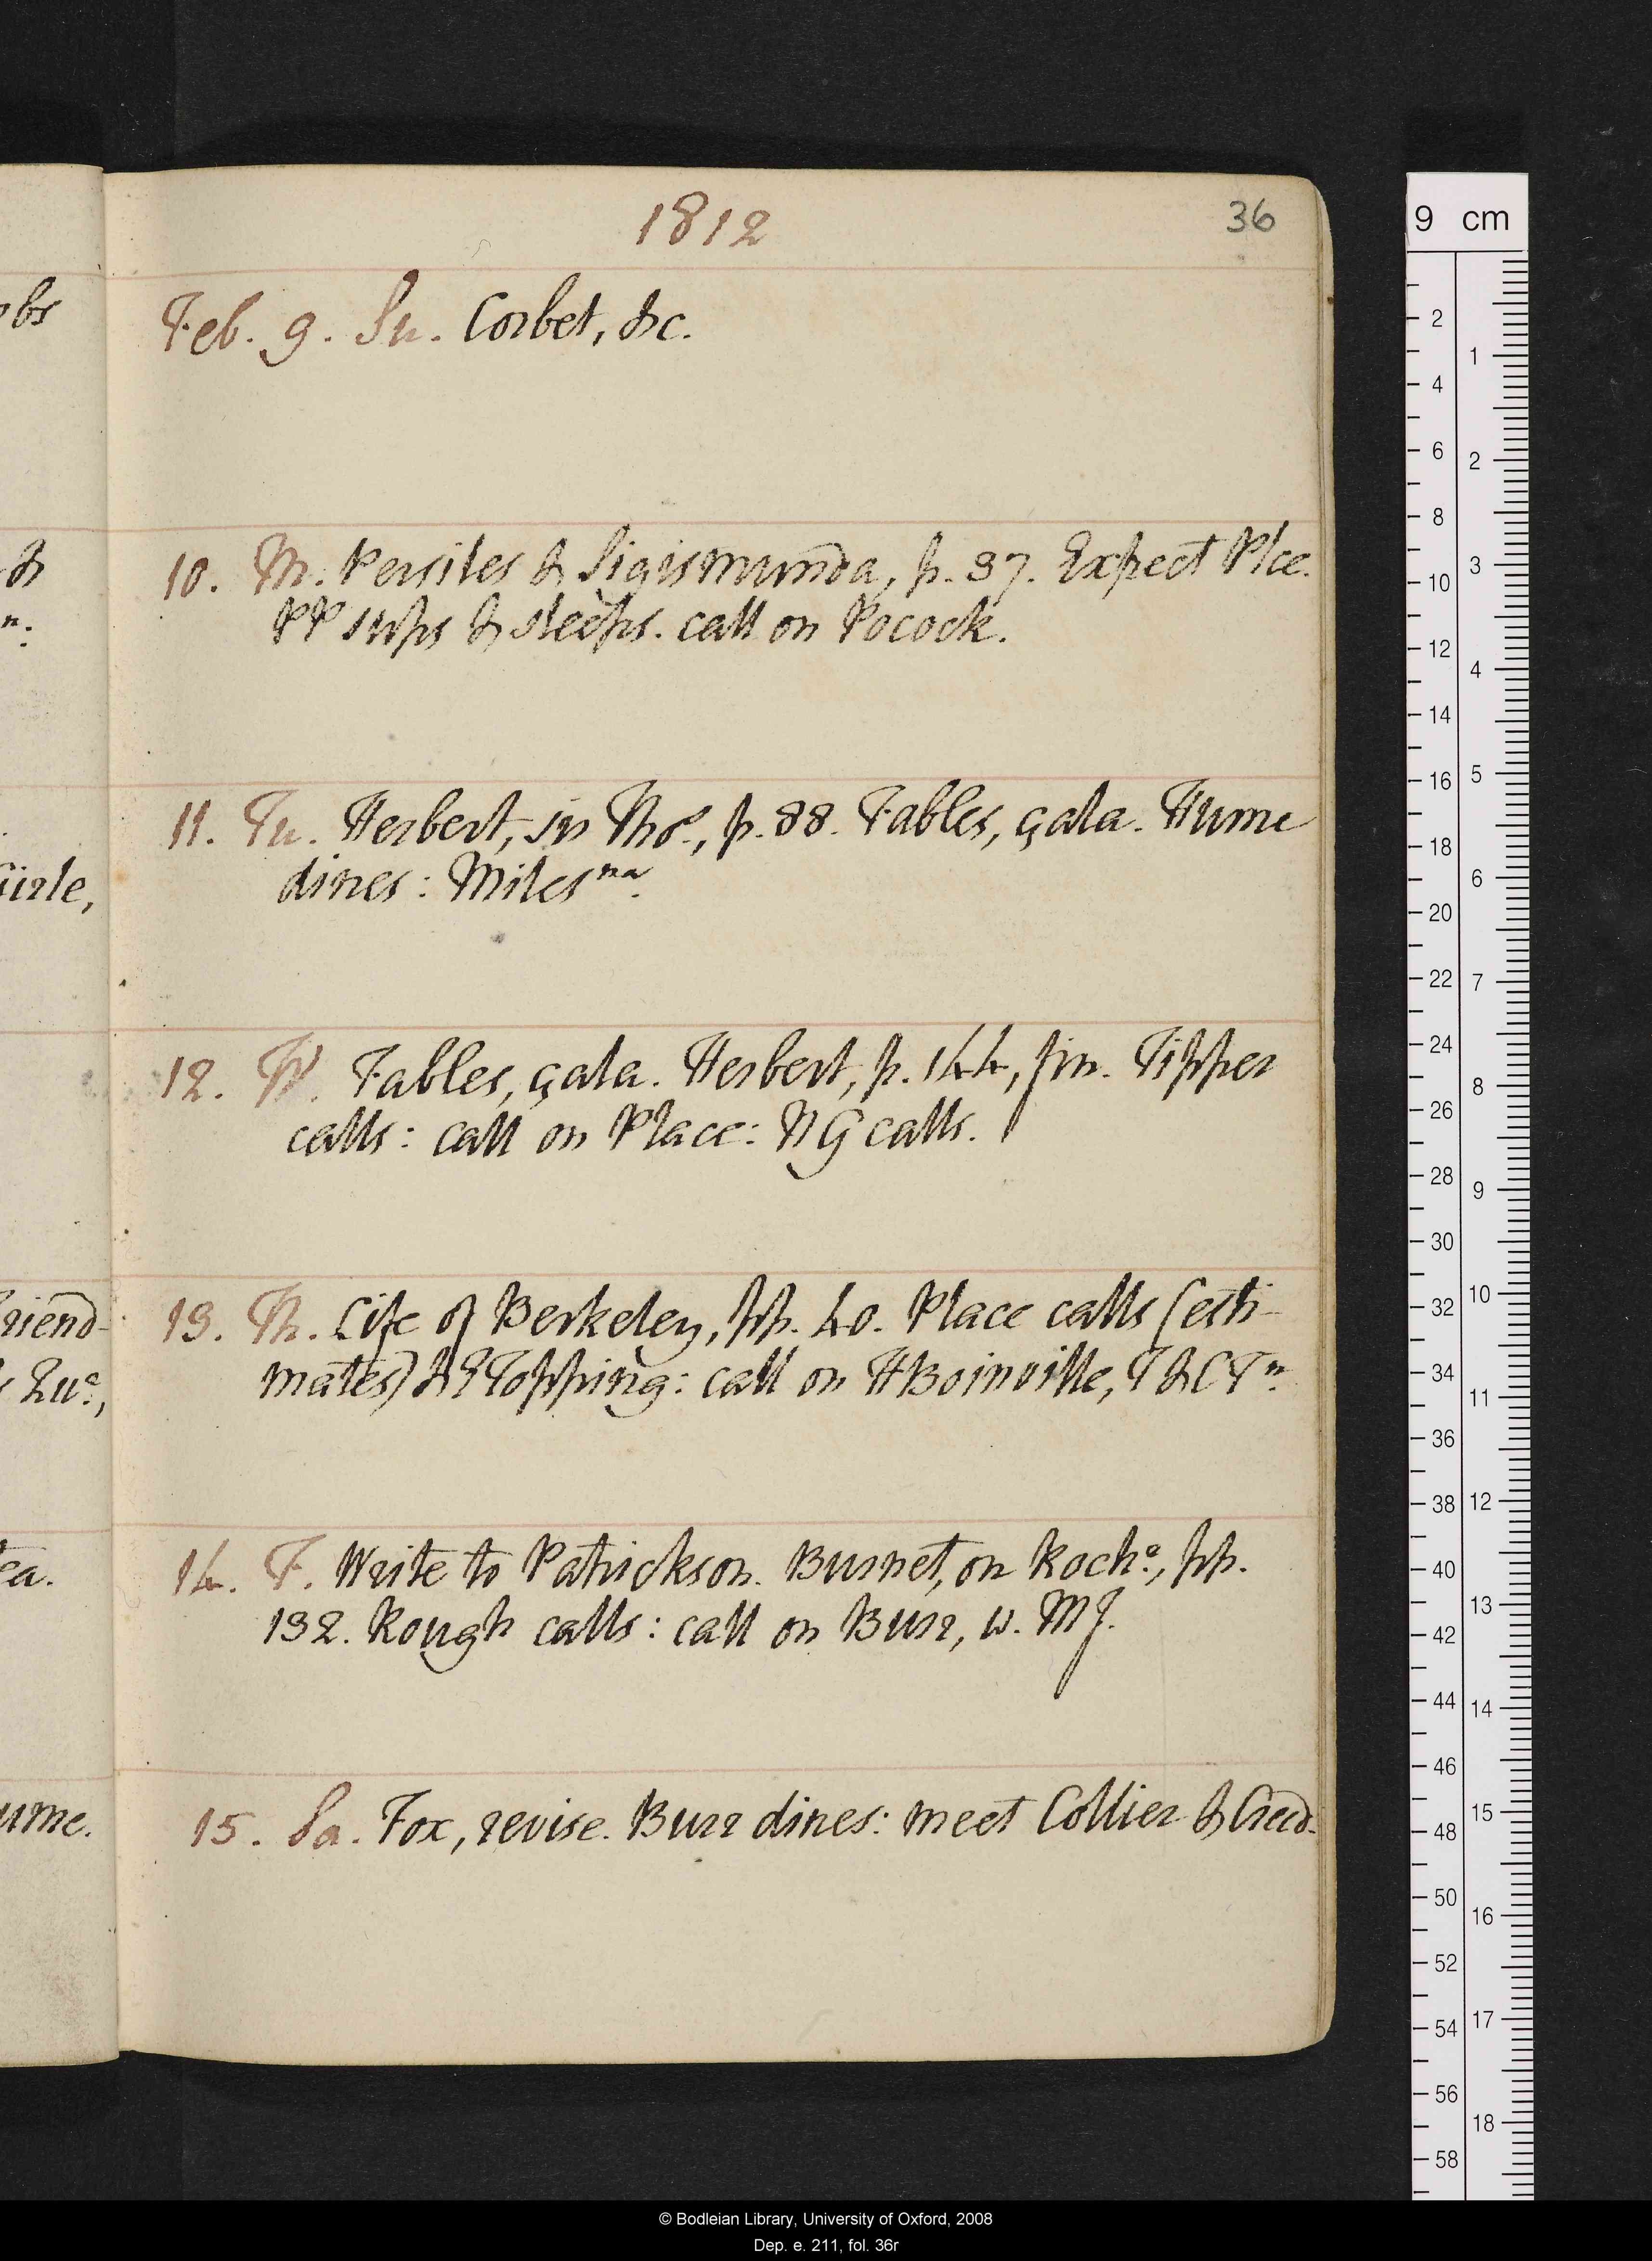 1812
36
Feb. 9. Su. Corbet, &c.
10. M. Persiles & Sigismunda, p. 37. Expect Plce.
PP sups & sleeps. call on Pocock.
11. Tu. Herbert, Sir Thos, p. 88. Fables, çala. Hume
dines: Miles na.
12. W. Fables, çala. Herbert, p. 144, fin. Tipper
calls: call on Place: N G calls.
13. Th. Life of Berkeley, pp. 40. Place calls (esti-
mates) & Topping: call on H Boinville, T & C Tn.
14. F. Write to Patrickson. Burnet, on Roche., pp.
132. Rough calls: call on Burr, w. MJ.
15. Sa. Fox, revise. Burr dines: meet Collier & Creed.
obs
&
n.
irle,
riend
Zua,
ea.
ume.
9 cm
2
4
6
8
10
12
14
16
18
20
22
24
26
28
30
32
34
36
38
40
42
44
46
48
50
52
54
56
58
1
2
3
4
5
6
7
8
9
10
11
12
13
14
15
16
17
18
© Bodleian Library, University of Oxford, 2008
Dep. e. 211, fol. 36r